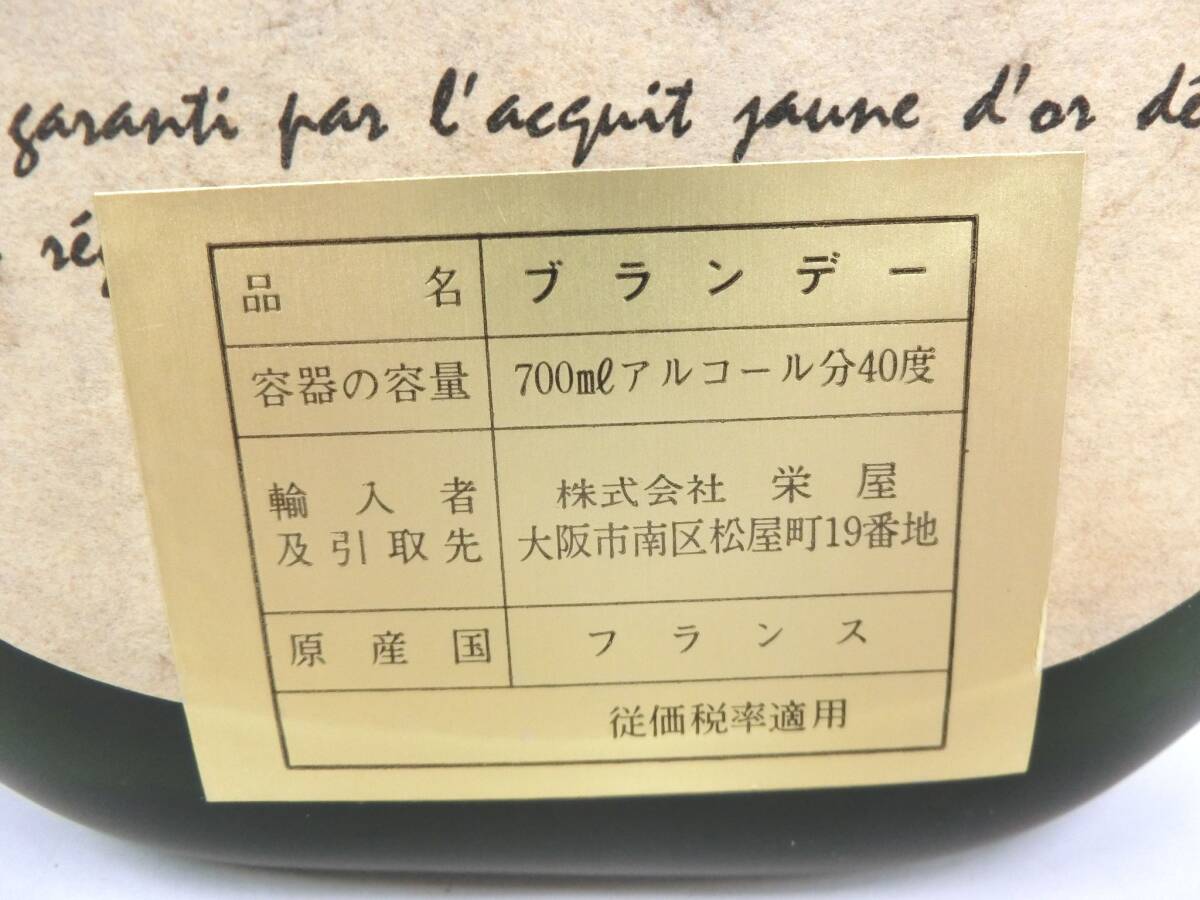 garanti par l'acquit jaune d'or dé
ré
品名 ブランデー
容器の容量 700mlアルコール分40度
輸入者 株式会社 栄屋
及引取先 大阪市南区松屋町19番地
原産国 フランス
従価税率適用